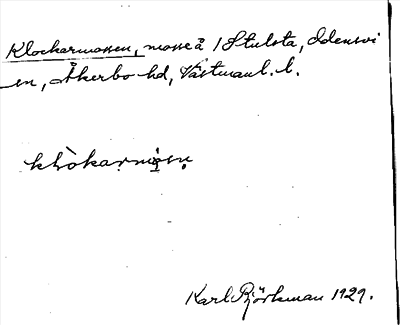 Klockarmossen, mosse å 1 Stulsta, Odensvi
en, Åkerbo hd, Västmanl. l.
Karl Björkman 1929.